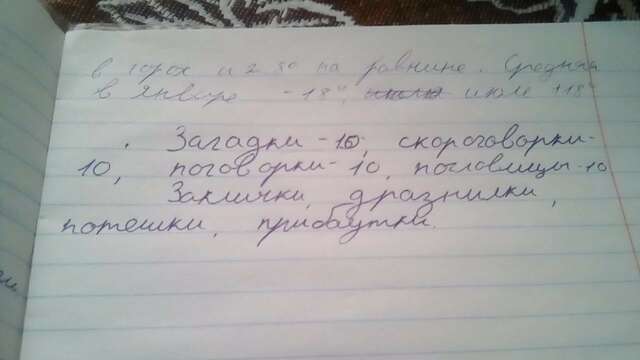 в горах и 280 на равнине. Средняя
в январе -18°, июле +18°
. Загадки-10, скороговорки-
10, поговорки-10, пословицы-10
Заклички, дразнилки,
потешки, прибаутки.